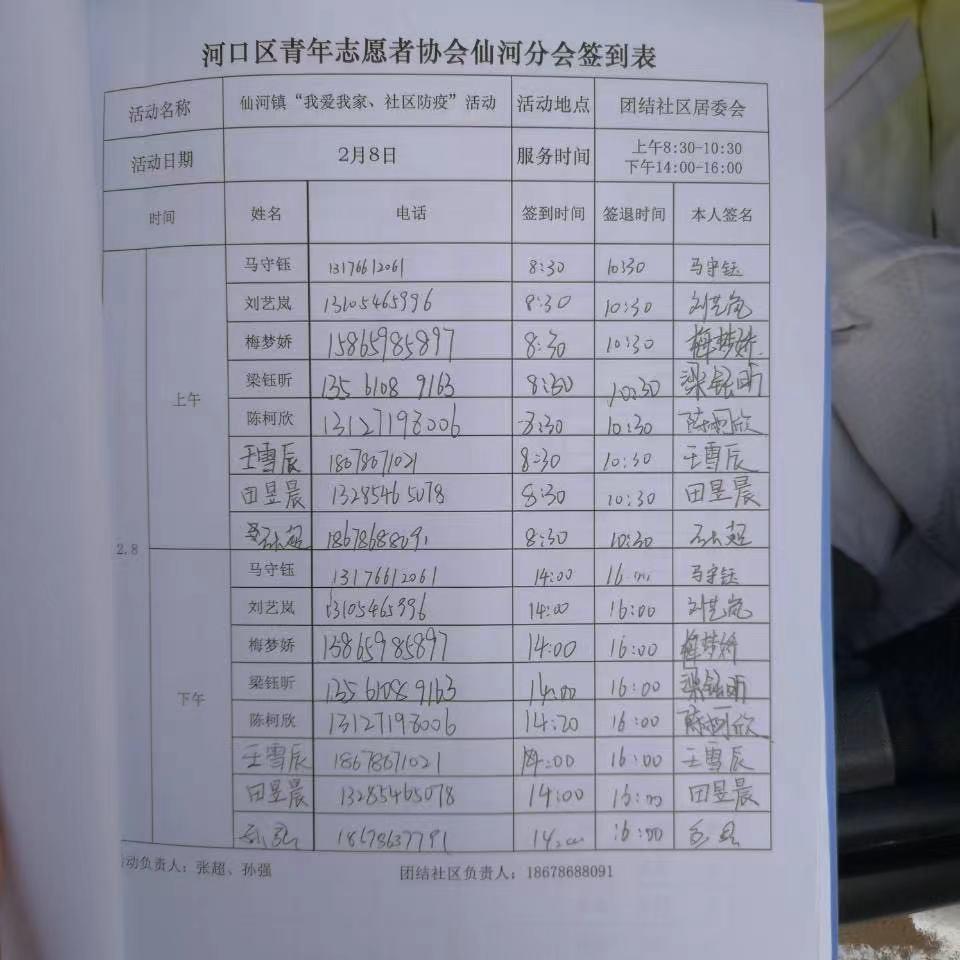 河口区青年志愿者协会仙河分会签到表
活动名称 仙河镇“我爱我家、社区防疫”活动 活动地点 团结社区居委会
活动日期 2月8日 服务时间 上午8:30-10:30
下午14:00-16:00
时间 姓名 电话 签到时间 签退时间 本人签名
2.8
上午
马守钰 13176612061 8:30 10:30 马守钰
刘艺岚 13105465996 8:30 10:30 刘艺岚
梅梦娇 15865985897 8:30 10:30 梅梦娇
梁钰昕 135 6108 9163 8:30 10:30 梁钰昕
陈柯欣 13127198006 8:30 10:30 陈柯欣
王雪辰 18678671021 8:30 10:30 王雪辰
田昱晨 13285465078 8:30 10:30 田昱晨
18678688091 8:30 10:30
下午
马守钰 13176612061 14:00 16:00 马守钰
刘艺岚 13105465996 14:00 16:00 刘艺岚
梅梦娇 15865985897 14:00 16:00 梅梦娇
梁钰昕 135 6108 9163 14:00 16:00 梁钰昕
陈柯欣 13127198006 14:20 16:00 陈柯欣
王雪辰 18678671021 14:00 16:00 王雪辰
田昱晨 13285465078 14:00 16:00 田昱晨
18678637791 14:00 16:00
动负责人：张超、孙强 团结社区负责人：18678688091